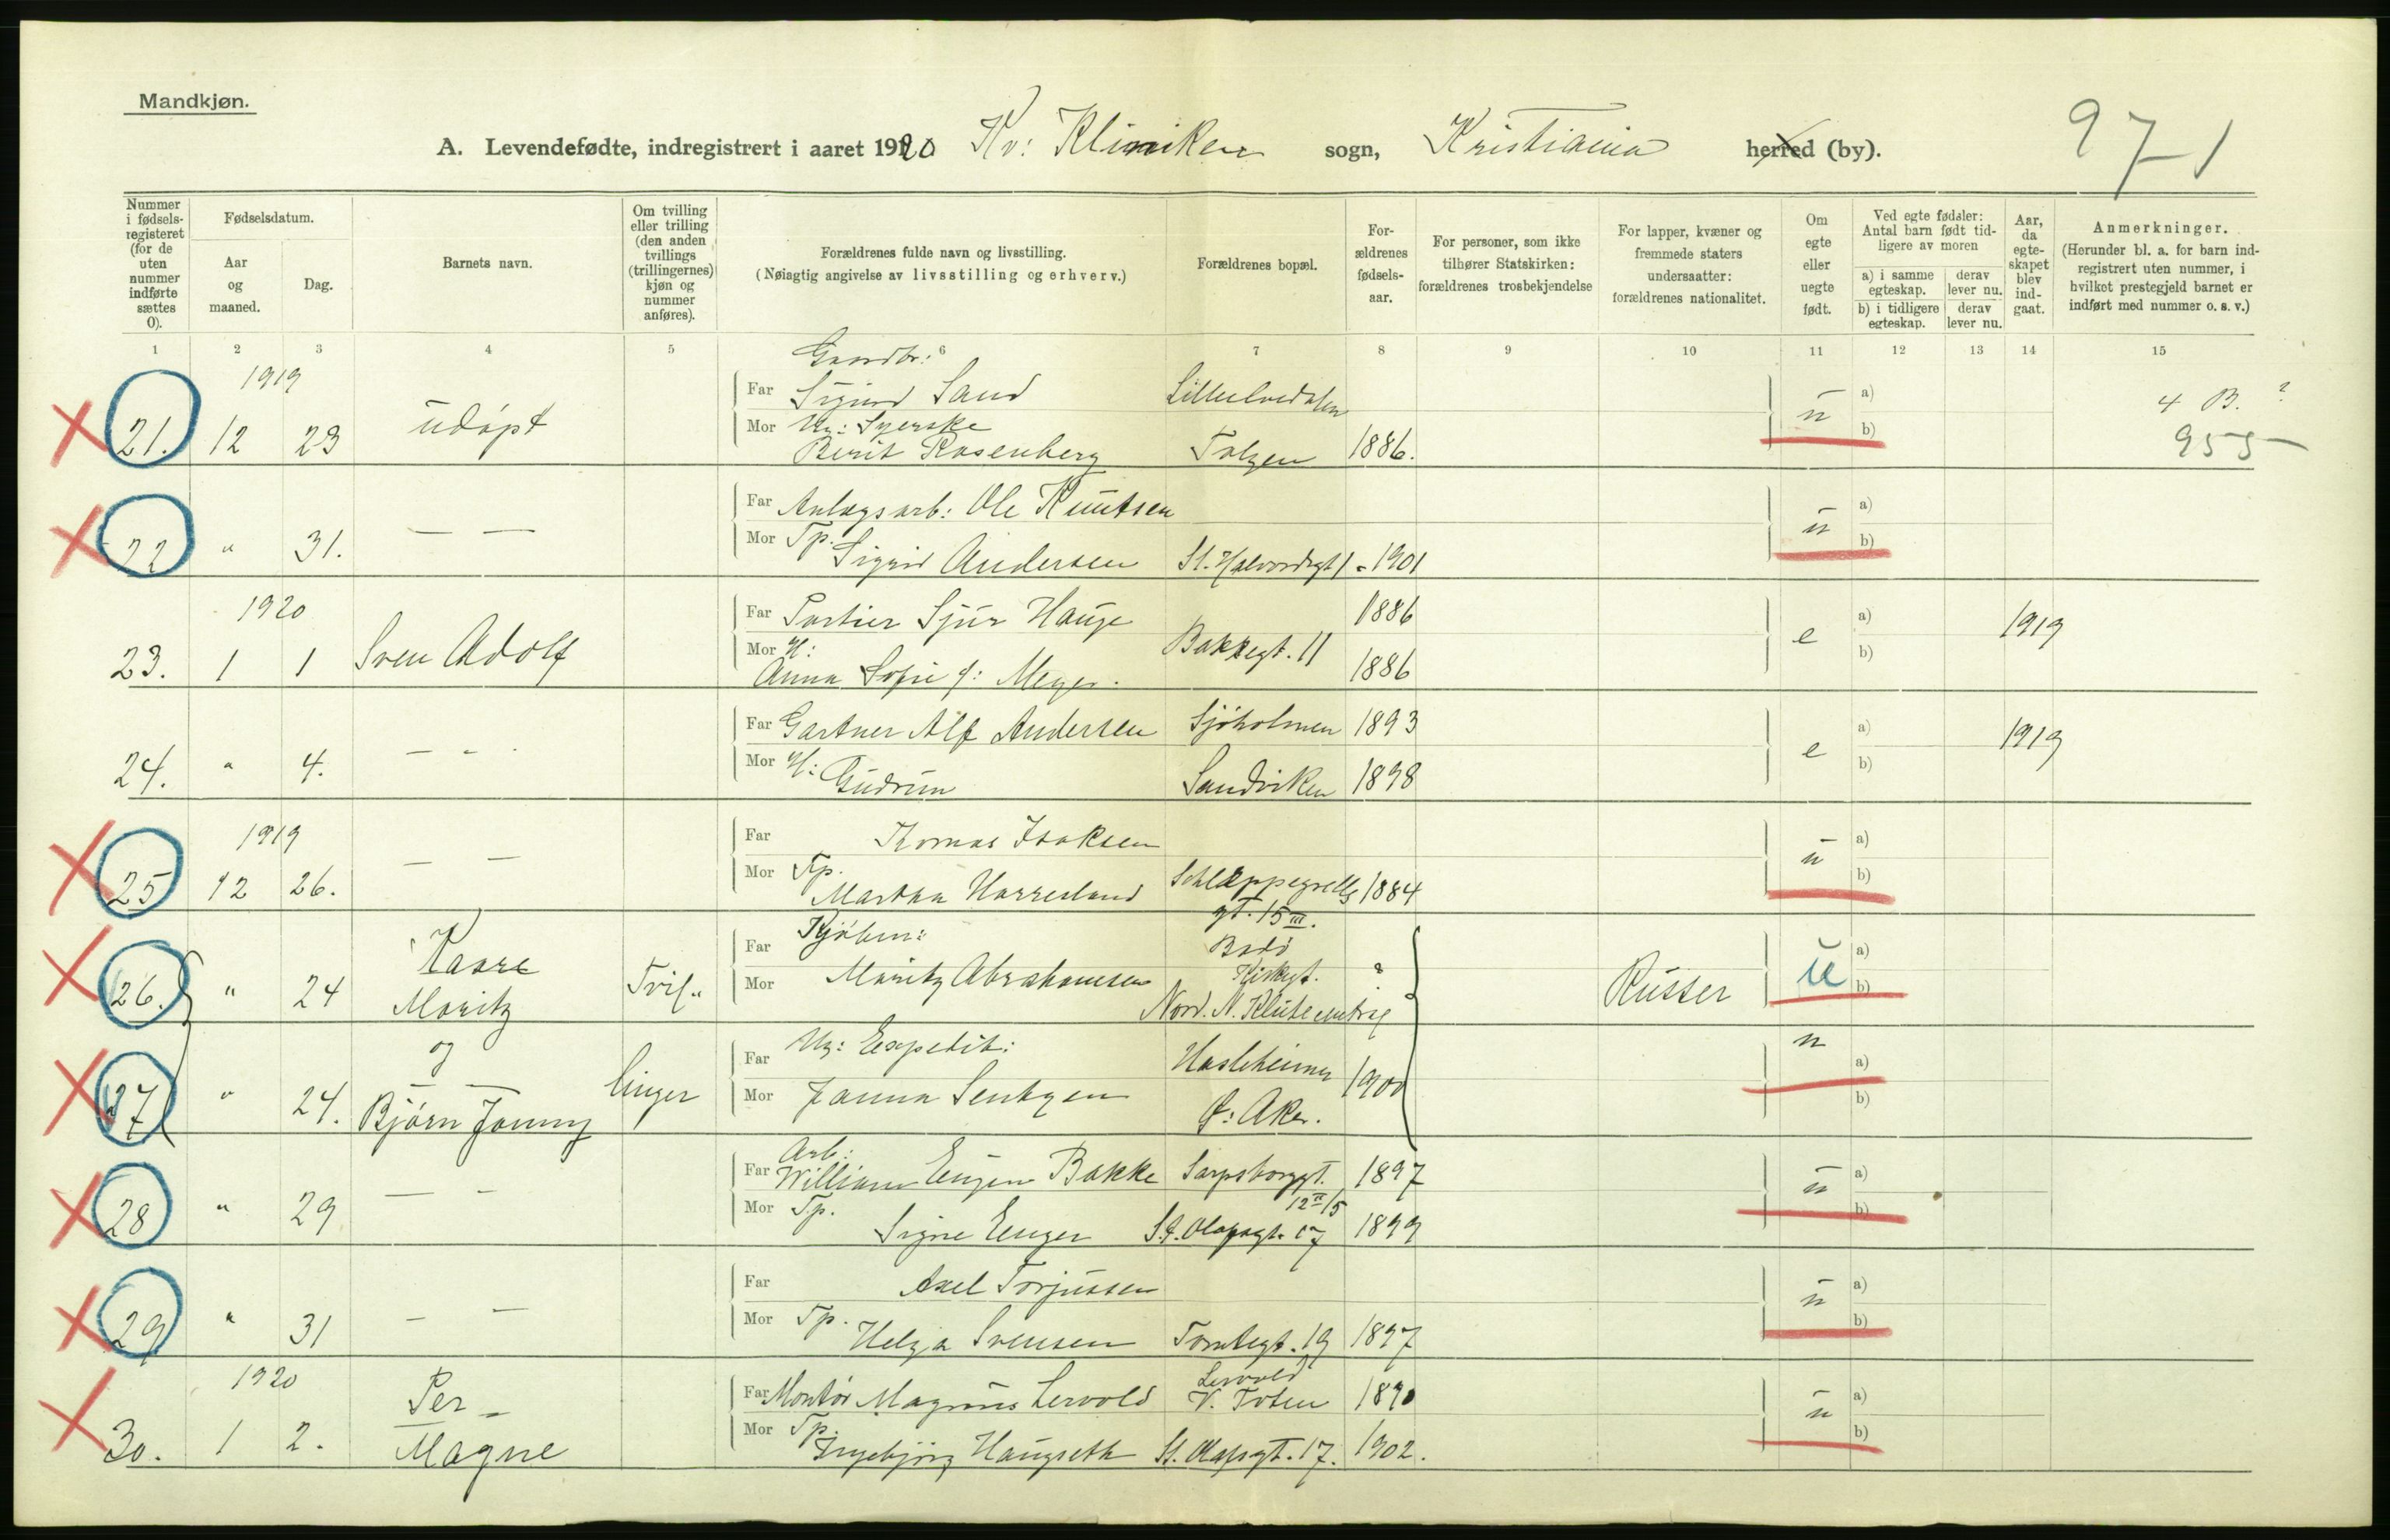 Mandkjøn.
A. Levendefødte, indregistrert i aaret 1920 Kv: Kliniken sogn, Kristiania herred (by).
971
Nummer i fødselsregisteret (for de uten nummer indførte sættes 0).
Fødselsdatum.
Aar og maaned.
Dag.
Barnets navn.
Om tvilling eller trilling (den anden tvillings (trillingernes) kjøn og nummer anføres).
Forældrenes fulde navn og livsstilling.
(Nøiagtig angivelse av livsstilling og erhverv.)
Forældrenes bopæl.
Forældrenes fødselsaar.
For personer, som ikke tilhører Statskirken: forældrenes trosbekjendelse
For lapper, kvæner og fremmede staters undersaatter: forældrenes nationalitet.
Om egte eller uegte født.
Ved egte fødsler: Antal barn født tidligere av moren
a) i samme egteskap. derav lever nu.
b) i tidligere egteskap. derav lever nu.
Aar, da egteskapet blev indgaat.
Anmerkninger.
(Herunder bl. a. for barn indregistrert uten nummer, i hvilket prestegjeld barnet er indført med nummer o. s. v.)
1 2 3 4 5 6 7 8 9 10 11 12 13 14 15
1919 Gaardbr:
Far Sigurd Sand Lilleelvedalen a) 4 B. ?
21. 12 23 udøpt Mor Ug: Syerske u b)
Berit Rosenberg Tolgen 1886. 955
Far Anlægsarb: Ole Knutsen a)
22 " 31. — — Mor Tp. u b)
Sigrid Andersen St. Halvardsgt 1 - 1901
1920 Far Portier Sjur Hauge 1886 a)
23. 1 1 Sven Adolf Mor H: Bakkegt. 11 e b) 1919
Anna Sofie f: Meyer. 1886
Far Gartner Alf Andersen Sjøholmen 1893 a)
24. " 4. — - . Mor H: e b) 1919
Gudrun Sandviken 1898
1919 Far Tomas Isaksen a)
25 12 26. — — Mor Tp. u b)
Martha Harresland Schleppegrells 1884
gt. 15 III.
Far Kjøbm: Bodø a)
26. " 24 Kaare Moritz Tvil- Mor Moritz Abrahamsen Kirkegt. ? Russer u b)
og
Far Ug: Expedit: Hasleheimen u a)
27 " 24. Bjørn Jonny linger Mor Janna Sentzen 1900 b)
Ø: Aker.
Arb:
Far William Eugen Bakke Sarpsborggt. 1897 a)
12 II/15
28 " 29 — - Mor Tp. u b)
Signe Enger St. Olafsgt. 17 1899
Far Axel Torjussen a)
29 " 31 - — Mor Tp. u b)
Helga Svensen Tomtegt. 19 1897
1920 Lervold
Far Montør Magnus Lervold V. Toten 1890 a)
30. 1 2. Per - Magne Mor Tp. u b)
Ingebjørg Haugseth St. Olafsgt. 17. 1902.